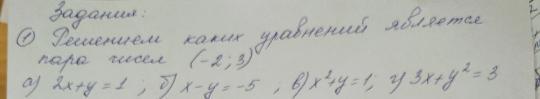 Задания:
① Решением каких уравнений является
пара чисел (-2; 3)
а) 2x+y=1 ; б) x-y=-5 ; в) x²+y=1; г) 3x+y²=3